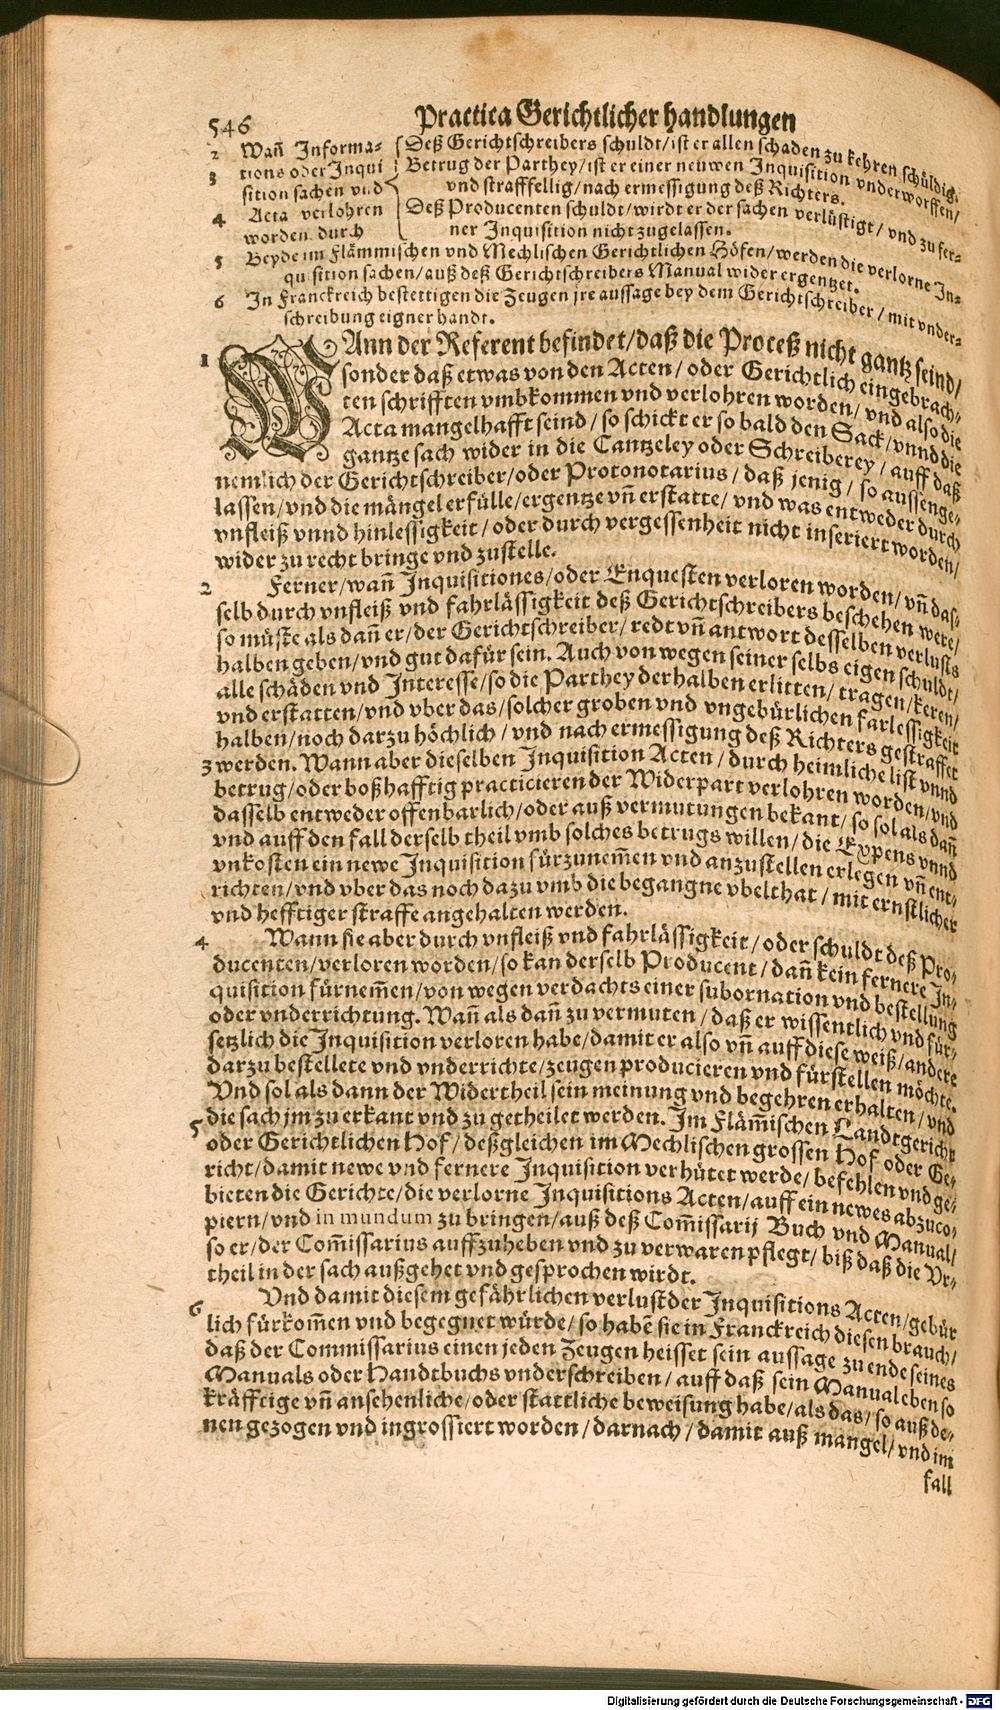 546
Practica Gerichtlicher handlungen
2 Wañ Informa- Deß Gerichtschreibers schuldt/ist er allen schaden zu kehren schüldig.
3 tions oder Inqui Betrug der Parthey/ist er einer neuwen Inquisition vnderworffen/
sition sachen vnd vnd strafffellig/nach ermessigung deß Richters.
4 Acta verlohren Deß Producenten schuldt/wirdt er der sachen verlüstigt/vnd zu fer-
worden durch ner Inquisition nicht zugelassen.
5 Beyde im Flämmischen vnd Mechlischen Gerichtlichen Höfen/werden die verlorne In-
quisition sachen/auß deß Gerichtschreibers Manual wider ergentzet.
6 In Franckreich bestettigen die Zeugen jre aussage bey dem Gerichtschreiber/mit vnder-
schreibung eigner handt.
1 WAnn der Referent befindet/daß die Proceß nicht gantz seind/
sonder daß etwas von den Acten/oder Gerichtlich eingebrach-
ten schrifften vmbkommen vnd verlohren worden/vnd also die
Acta mangelhafft seind/so schickt er so bald den Sack/vnnd die
gantze sach wider in die Cantzeley oder Schreiberey/auff daß
nemlich der Gerichtschreiber/oder Protonotarius/daß jenig/so aussenge-
lassen/vnd die mängel erfülle/ergentze vñ erstatte/vnd was entweder durch
vnfleiß vnnd hinlessigkeit/oder durch vergessenheit nicht inseriert worden/
wider zu recht bringe vnd zustelle.
2 Ferner/wañ Inquisitiones/oder Enquesten verloren worden/vñ das-
selb durch vnfleiß vnd fahrlässigkeit deß Gerichtschreibers beschehen were/
so müste als dañ er/der Gerichtschreiber/redt vñ antwort desselben verlusts
halben geben/vnd gut dafür sein. Auch von wegen seiner selbs eigen schuldt/
alle schäden vnd Interesse/so die Parthey derhalben erlitten/tragen/keren/
vnd erstatten/vnd vber das/solcher groben vnd vngebürlichen farlessigkeit
halben/noch darzu höchlich/vnd nach ermessigung deß Richters gestraffet
3 werden. Wann aber dieselben Inquisition Acten/durch heimliche list vnnd
betrug/oder boßhafftig practicieren der Widerpart verlohren worden/vnd
dasselb entweder offenbarlich/oder auß vermutungen bekant/so sol als dañ
vnd auff den fall derselb theil vmb solches betrugs willen/die Expens vnnd
vnkosten ein newe Inquisition fürzunem̃en vnd anzustellen erlegen vñ ent-
richten/vnd vber das noch dazu vmb die begangne vbelthat/mit ernstlicher
vnd hefftiger straffe angehalten werden.
4 Wann sie aber durch vnfleiß vnd fahrlässigkeit/oder schuldt deß Pro-
ducenten/verloren worden/so kan derselb Producent/dañ kein fernere In-
quisition fürnem̃en/von wegen verdachts einer subornation vnd bestellung
oder vnderrichtung. Wañ als dañ zu vermuten/daß er wissentlich vnd für-
setzlich die Inquisition verloren habe/damit er also vñ auff diese weiß/andere
darzu bestellete vnd vnderrichte/zeugen producieren vnd fürstellen möchte.
Vnd sol als dann der Widertheil sein meinung vnd begehren erhalten/vnd
die sach jm zu erkant vnd zu getheilet werden. Im Fläm̃ischen Landtgericht
5 oder Gerichtlichen Hof/deßgleichen im Mechlischen grossen Hof oder Ge-
richt/damit newe vnd fernere Inquisition verhütet werde/befehlen vnd ge-
bieten die Gerichte/die verlorne Inquisitions Acten/auff ein newes abzuco-
piern/vnd in mundum zu bringen/auß deß Com̃issarij Buch vnd Manual/
so er/der Com̃issarius auffzuheben vnd zu verwaren pflegt/biß daß die Vr-
theil in der sach außgehet vnd gesprochen wirdt.
6 Vnd damit diesem gefährlichen verlust der Inquisitions Acten/gebür
lich fürkom̃en vnd begegnet würde/so habẽ sie in Franckreich diesen brauch/
daß der Commissarius einen jeden Zeugen heisset sein aussage zu ende seines
Manuals oder Handtbuchs vnderschreiben/auff daß sein Manual eben so
kräfftige vñ ansehenliche/oder stattliche beweisung habe/als das/so auß de-
nen gezogen vnd ingrossiert worden/darnach/damit auß mangel/vnd im
fall
Digitalisierung gefördert durch die Deutsche Forschungsgemeinschaft - DFG